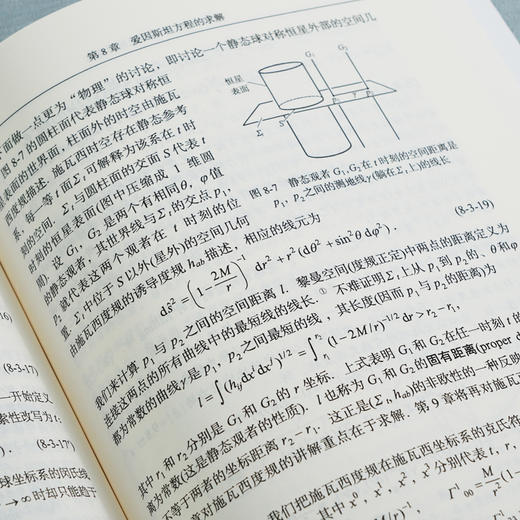 第 8 章　爱因斯坦方程的求解
面做一点更为“物理”的讨论，即讨论一个静态球对称恒星外部的空间几
图 8-7 的圆柱面代表静态球对称恒
星表面的世界面，柱面外的时空由施瓦
西度规描述. 施瓦西时空存在静态参考
系，每一等 t 面 Σₜ 可解释为该系在 t 时
刻的空间，Σₜ 与圆柱面的交面 S 代表 t
时刻的恒星表面(图中压缩成 1 维圆
周). 设 G₁、G₂ 是两个有相同 θ，φ 值
的静态观者，其世界线与 Σₜ 的交点 p₁，
p₂ 就代表这两个观者在 t 时刻的位
置. Σₜ 中位于 S 以外(星外)的空间几何
由施瓦西度规的诱导度规 h_ab 描述，相应的线元为
恒星
表面
G₁
G₂
Σₜ
S
图 8-7　静态观者 G₁、G₂ 在 t 时刻的空间距离是
p₁、p₂ 之间的测地线 γ (躺在 Σₜ 上)的线长
dŝ² = (1 − 2M/r)⁻¹ dr² + r²(dθ² + sin²θ dφ²) .
(8-3-19)
我们来计算 p₁ 与 p₂ 之间的空间距离 l. 黎曼空间(度规正定)中两点的距离定义为
连接这两点的所有曲线中的最短线的线长.① 不难证明 Σₜ 上从 p₁ 到 p₂ 的、θ 和 φ
都为常数的曲线 γ 是 p₁、p₂ 之间最短的线，其长度(因而 p₁ 与 p₂ 的距离)为
l = ∫(h_ij dxⁱ dxʲ)^1/2 = ∫_r₁^r₂ (1−2M/r)^−1/2 dr > r₂−r₁ ,
其中 r₁ 和 r₂ 分别是 G₁ 和 G₂ 的 r 坐标. 上式表明 G₁ 和 G₂ 在任一时刻 t 的
离为常数(这是静态观者的性质). l 也称为 G₁ 和 G₂ 的固有距离(proper d
不等于两者的坐标距离 r₂−r₁. 这正是(Σₜ, h_ab)的非欧性的一种反映
章对施瓦西度规的讲解重点在于求解. 第 9 章将再对施瓦
我们把施瓦西度规在施瓦西坐标系的克氏符
其中 x⁰, x¹, x², x³ 分别代表 t, r,
(8-3-17)
一开始定义
素性改写为 t:
(8-3-17)
球坐标系的冈氏线
→ ∞ 时却只能趋于